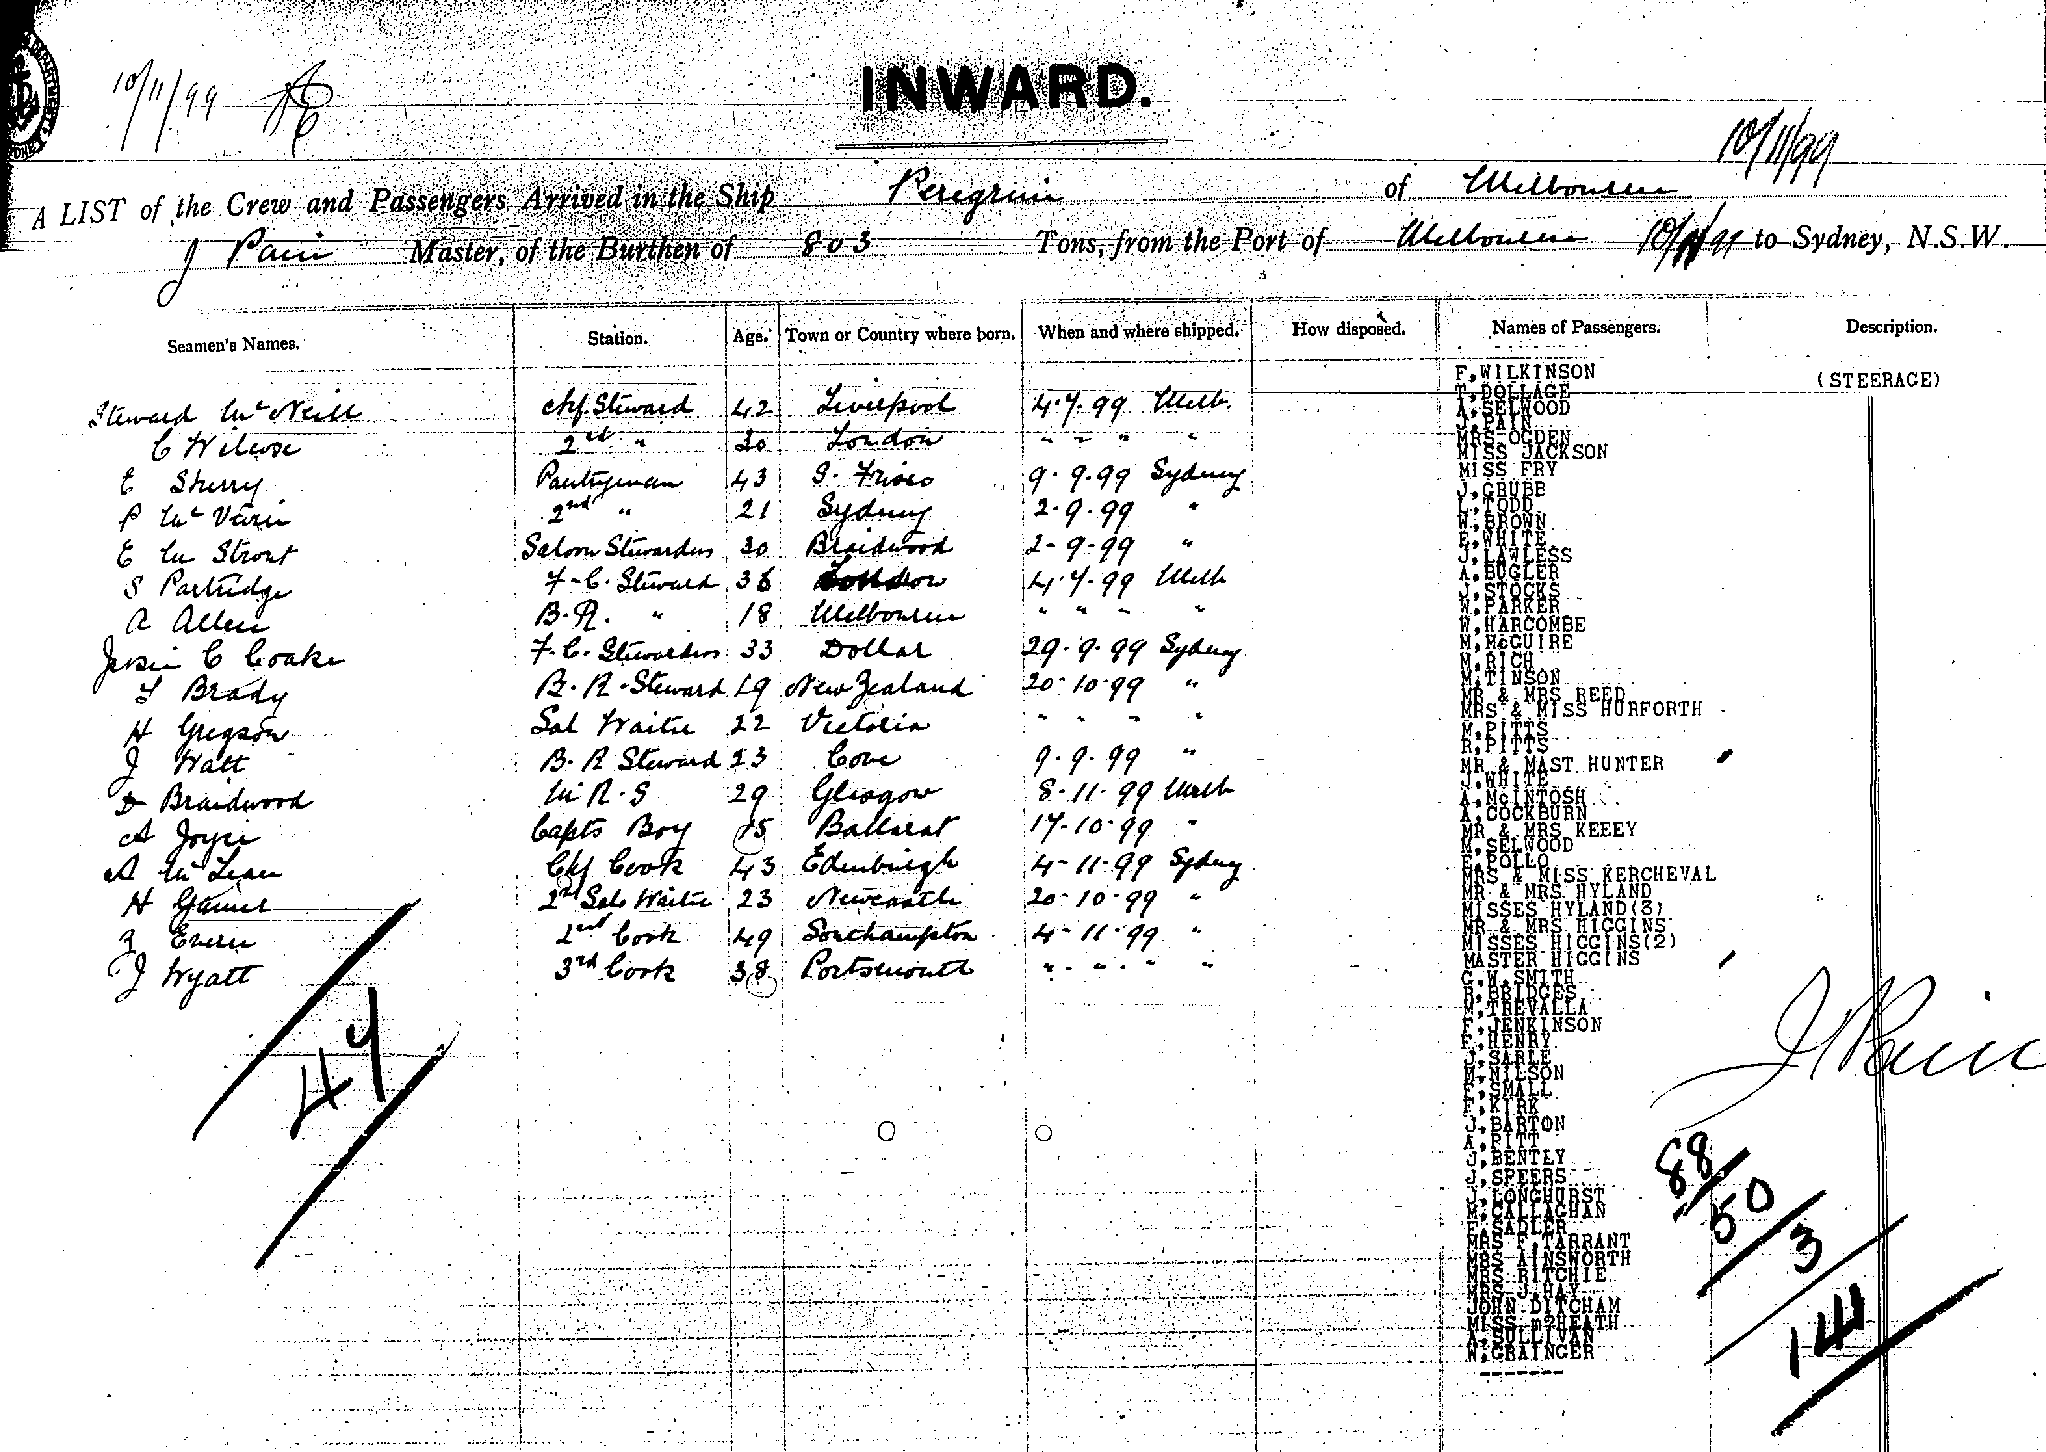 10/11/99
INWARD.
10/11/99
A LIST of the Crew and Passengers Arrived in the Ship Peregrine of Melbourne
J Pain Master, of the Burthen of 803 Tons, from the Port of Melbourne 10/11/99 to Sydney, N.S.W.
Seamen's Names. Station. Age. Town or Country where born. When and where shipped. How disposed. Names of Passengers. Description.
Steward McNeill Chf. Steward 42 Liverpool 4.7.99 Melb.
C Wilcose 2nd " 30 London " " " "
E Sherry Pantryman 43 S. Frisco 9.9.99 Sydney
P 2nd " 21 Sydney 2.9.99 "
E Saloon Stewardess 30 Braidwood 2-9-99 "
S Partridge F.C. Steward 36 London 4.7.99 Melb
A Allen B.R. " 18 Melbourne " " " "
Jessie C Coake F.C. Stewardess 33 Dollar 29.9.99 Sydney
Brady B.R. Steward 19 New Zealand 20.10.99 "
H Gregson Sal Waiter 22 Victoria " " " "
J Watt B.R Steward 23 Cove 9.9.99 "
D Braidwood M R.S 29 Glasgow 8.11.99 Melb
A Joyce Capts Boy 15 Ballarat 17.10.99 "
A McLean Chf Cook 43 Edinburgh 4-11.99 Sydney
H 2nd Sal. Waiter 23 Newcastle 20.10.99 "
2nd Cook 49 Southampton 4-11.99 "
J Wyatt 3rd Cook 38 Portsmouth " " " "
47
F,WILKINSON
(STEERAGE)
T,DOLLAGE
A,SELWOOD
J,PAIN
MRS OGDEN
MISS JACKSON
MISS FRY
J,GRUBB
L,TODD
W,BROWN
E,WHITE
J,LAWLESS
A,BUGLER
J,STOCKS
W,PARKER
W,HARCOMBE
M,McGUIRE
M,RICH
M,TINSON
MR & MRS REED
MRS & MISS HURFORTH
M,PITTS
R,PITTS
MR & MAST HUNTER
J,WHITE
A,McINTOSH
A,COCKBURN
MR & MRS KEEEY
M,SELWOOD
F,POLLO
MRS & MISS KERCHEVAL
MR & MRS HYLAND
MISSES HYLAND(3)
MR & MRS HIGGINS
MISSES HIGGINS(2)
MASTER HIGGINS
G,W,SMITH
R,BRIDGES
M,TREVALLA
F,JENKINSON
F,HENRY
J,SARLE
M,NILSON
F,SMALL
F,KIRK
J,BARTON
A,PITT
J,BENTLY
J,SPEERS
J,LONGHURST
M,CALLAGHAN
F,SADLER
MRS F,TARRANT
MRS AINSWORTH
MRS RITCHIE
MRS J,HAY
JOHN DITCHAM
MISS HEATH
A,SULLIVAN
W,GRAINGER
-------
J Pain
88
50
3
141